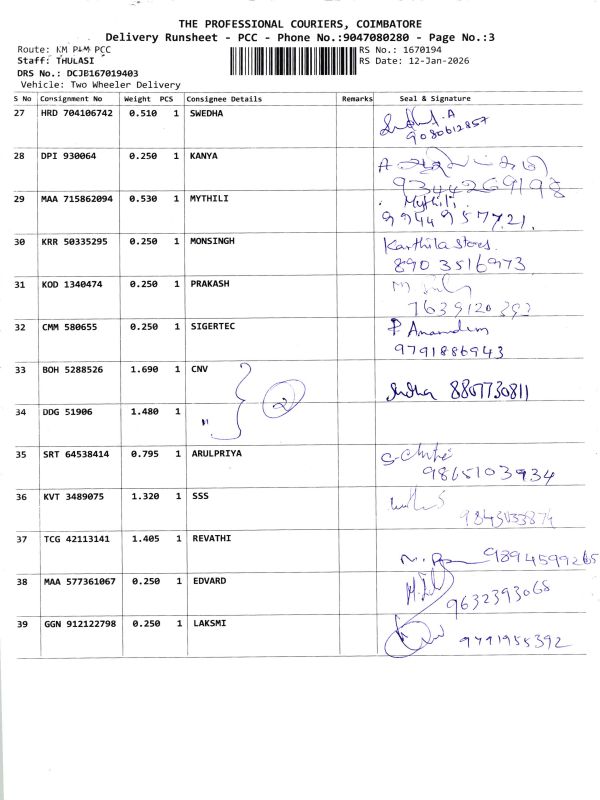 THE PROFESSIONAL COURIERS, COIMBATORE
Delivery Runsheet - PCC - Phone No.:9047080280 - Page No.:3
Route: KM PKM PCC
RS No.: 1670194
Staff: THULASI
RS Date: 12-Jan-2026
DRS No.: DCJB167019403
Vehicle: Two Wheeler Delivery
S No Consignment No Weight PCS Consignee Details Remarks Seal & Signature
27 HRD 704106742 0.510 1 SWEDHA
9080612857
28 DPI 930064 0.250 1 KANYA
9344269198
29 MAA 715862094 0.530 1 MYTHILI Mythili
9944957721
30 KRR 50335295 0.250 1 MONSINGH Karthila stores
890 3516973
31 KOD 1340474 0.250 1 PRAKASH
7639120392
32 CMM 580655 0.250 1 SIGERTEC
9791886943
33 BOH 5288526 1.690 1 CNV
2
8807730811
34 DDG 51906 1.480 1 "
35 SRT 64538414 0.795 1 ARULPRIYA
9865103934
36 KVT 3489075 1.320 1 SSS
37 TCG 42113141 1.405 1 REVATHI
9894599265
38 MAA 577361067 0.250 1 EDVARD
9632393068
39 GGN 912122798 0.250 1 LAKSMI
9791955392